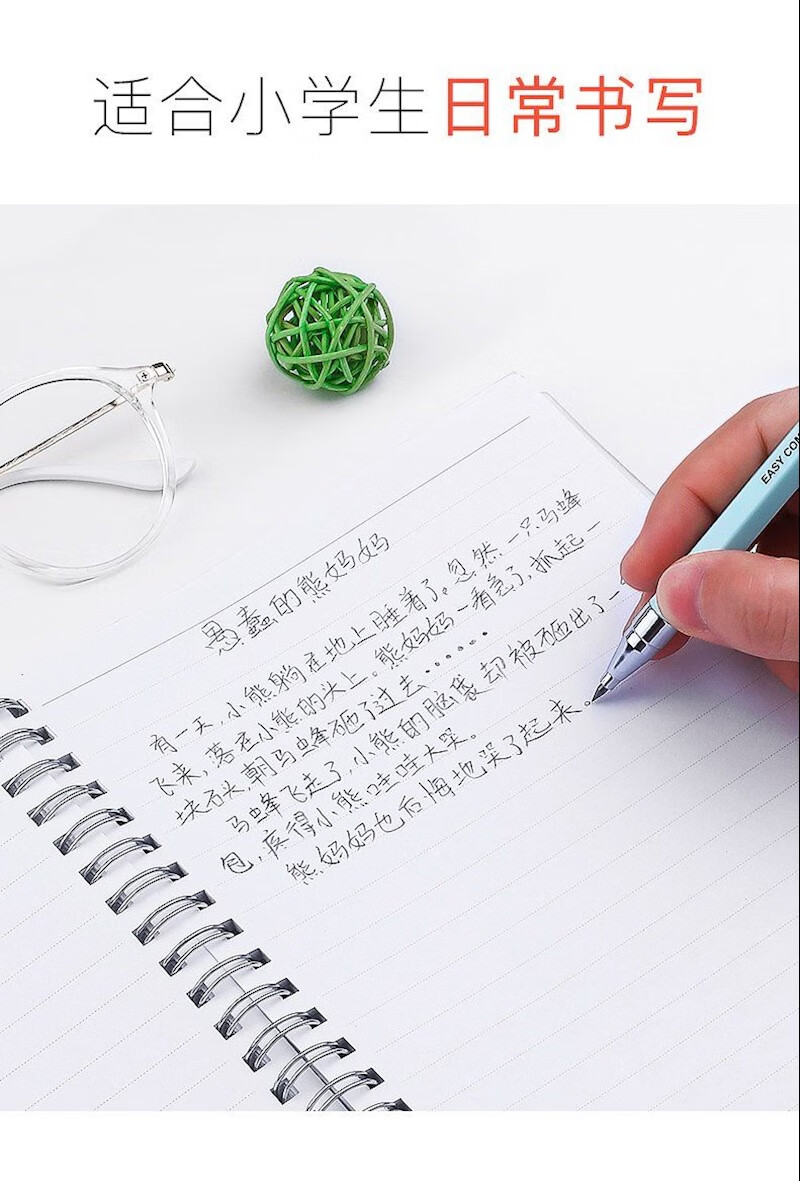 适合小学生日常书写
愚蠢的熊妈妈
有一天,小熊躺在地上睡着了。忽然一只马蜂
飞来,落在小熊的头上。熊妈妈一看急了,抓起一
块石头,朝马蜂砸了过去……
马蜂飞走了,小熊的脑袋却被砸出了一
包,疼得小熊哇哇大哭。
熊妈妈也后悔地哭了起来。
EASY